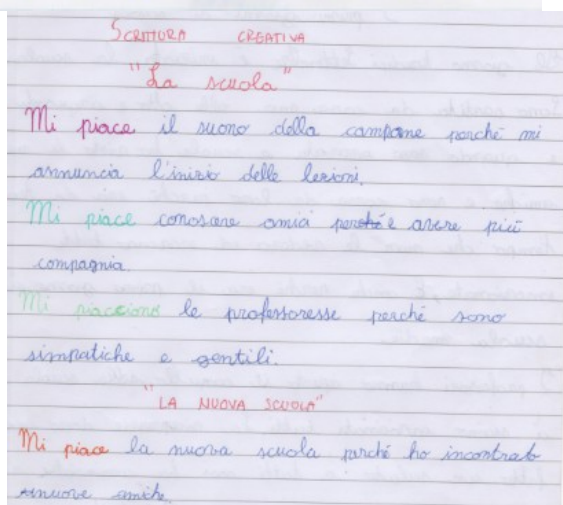 SCRITTURA CREATIVA
"La scuola"
Mi piace il suono della campane perché mi
annuncia l'inizio delle lezioni.
Mi piace conoscere amici e avere più
compagnia.
Mi piacciono le professoresse perché sono
simpatiche e gentili.
"LA NUOVA SCUOLA"
Mi piace la nuova scuola perché ho incontrato
nuove amiche.